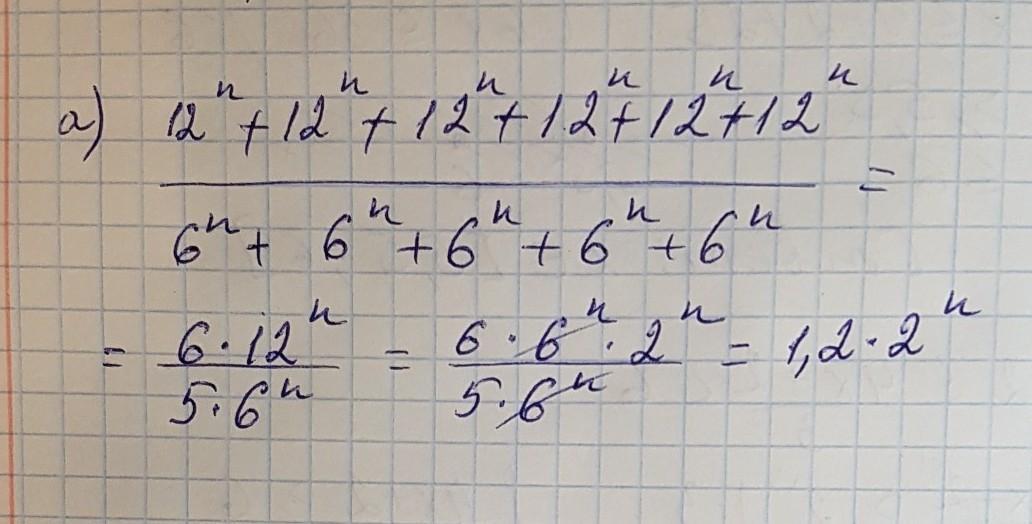 а) 12ⁿ + 12ⁿ + 12ⁿ + 12ⁿ + 12ⁿ + 12ⁿ
=
6ⁿ + 6ⁿ + 6ⁿ + 6ⁿ + 6ⁿ
= 6·12ⁿ / 5·6ⁿ = 6·6ⁿ·2ⁿ / 5·6ⁿ = 1,2·2ⁿ